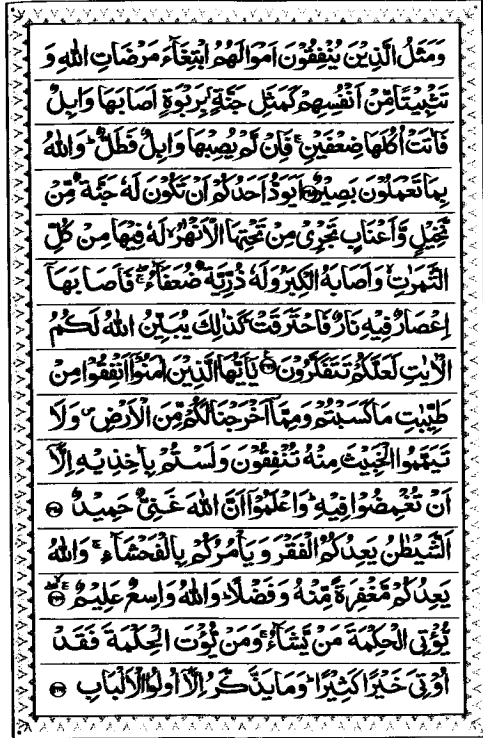 وَمَثَلُ الَّذِيْنَ يُنْفِقُوْنَ اَمْوَالَهُمُ ابْتِغَآءَ مَرْضَاتِ اللّٰهِ وَ
تَثْبِيْتًا مِّنْ اَنْفُسِهِمْ كَمَثَلِ جَنَّةٍۭ بِرَبْوَةٍ اَصَابَهَا وَابِلٌ
فَاٰتَتْ اُكُلَهَا ضِعْفَيْنِ ۚ فَاِنْ لَّمْ يُصِبْهَا وَابِلٌ فَطَلٌّ ؕ وَاللّٰهُ
بِمَا تَعْمَلُوْنَ بَصِيْرٌ ۝۲۶۵ اَيَوَدُّ اَحَدُكُمْ اَنْ تَكُوْنَ لَهٗ جَنَّةٌ مِّنْ
نَّخِيْلٍ وَّاَعْنَابٍ تَجْرِيْ مِنْ تَحْتِهَا الْاَنْهٰرُ ۙ لَهٗ فِيْهَا مِنْ كُلِّ
الثَّمَرٰتِ ۙ وَاَصَابَهُ الْكِبَرُ وَلَهٗ ذُرِّيَّةٌ ضُعَفَآءُ ۖ فَاَصَابَهَاۤ
اِعْصَارٌ فِيْهِ نَارٌ فَاحْتَرَقَتْ ؕ كَذٰلِكَ يُبَيِّنُ اللّٰهُ لَكُمُ
الْاٰيٰتِ لَعَلَّكُمْ تَتَفَكَّرُوْنَ ۝۲۶۶ يٰۤاَيُّهَا الَّذِيْنَ اٰمَنُوْۤا اَنْفِقُوْا مِنْ
طَيِّبٰتِ مَا كَسَبْتُمْ وَمِمَّاۤ اَخْرَجْنَا لَكُمْ مِّنَ الْاَرْضِ ۪ وَلَا
تَيَمَّمُوا الْخَبِيْثَ مِنْهُ تُنْفِقُوْنَ وَلَسْتُمْ بِاٰخِذِيْهِ اِلَّاۤ
اَنْ تُغْمِضُوْا فِيْهِ ؕ وَاعْلَمُوْۤا اَنَّ اللّٰهَ غَنِيٌّ حَمِيْدٌ ۝۲۶۷
اَلشَّيْطٰنُ يَعِدُكُمُ الْفَقْرَ وَيَاْمُرُكُمْ بِالْفَحْشَآءِ ۚ وَاللّٰهُ
يَعِدُكُمْ مَّغْفِرَةً مِّنْهُ وَفَضْلًا ؕ وَاللّٰهُ وَاسِعٌ عَلِيْمٌ ۝۲۶۸
يُّؤْتِي الْحِكْمَةَ مَنْ يَّشَآءُ ۚ وَمَنْ يُّؤْتَ الْحِكْمَةَ فَقَدْ
اُوْتِيَ خَيْرًا كَثِيْرًا ؕ وَمَا يَذَّكَّرُ اِلَّاۤ اُولُوا الْاَلْبَابِ ۝۲۶۹